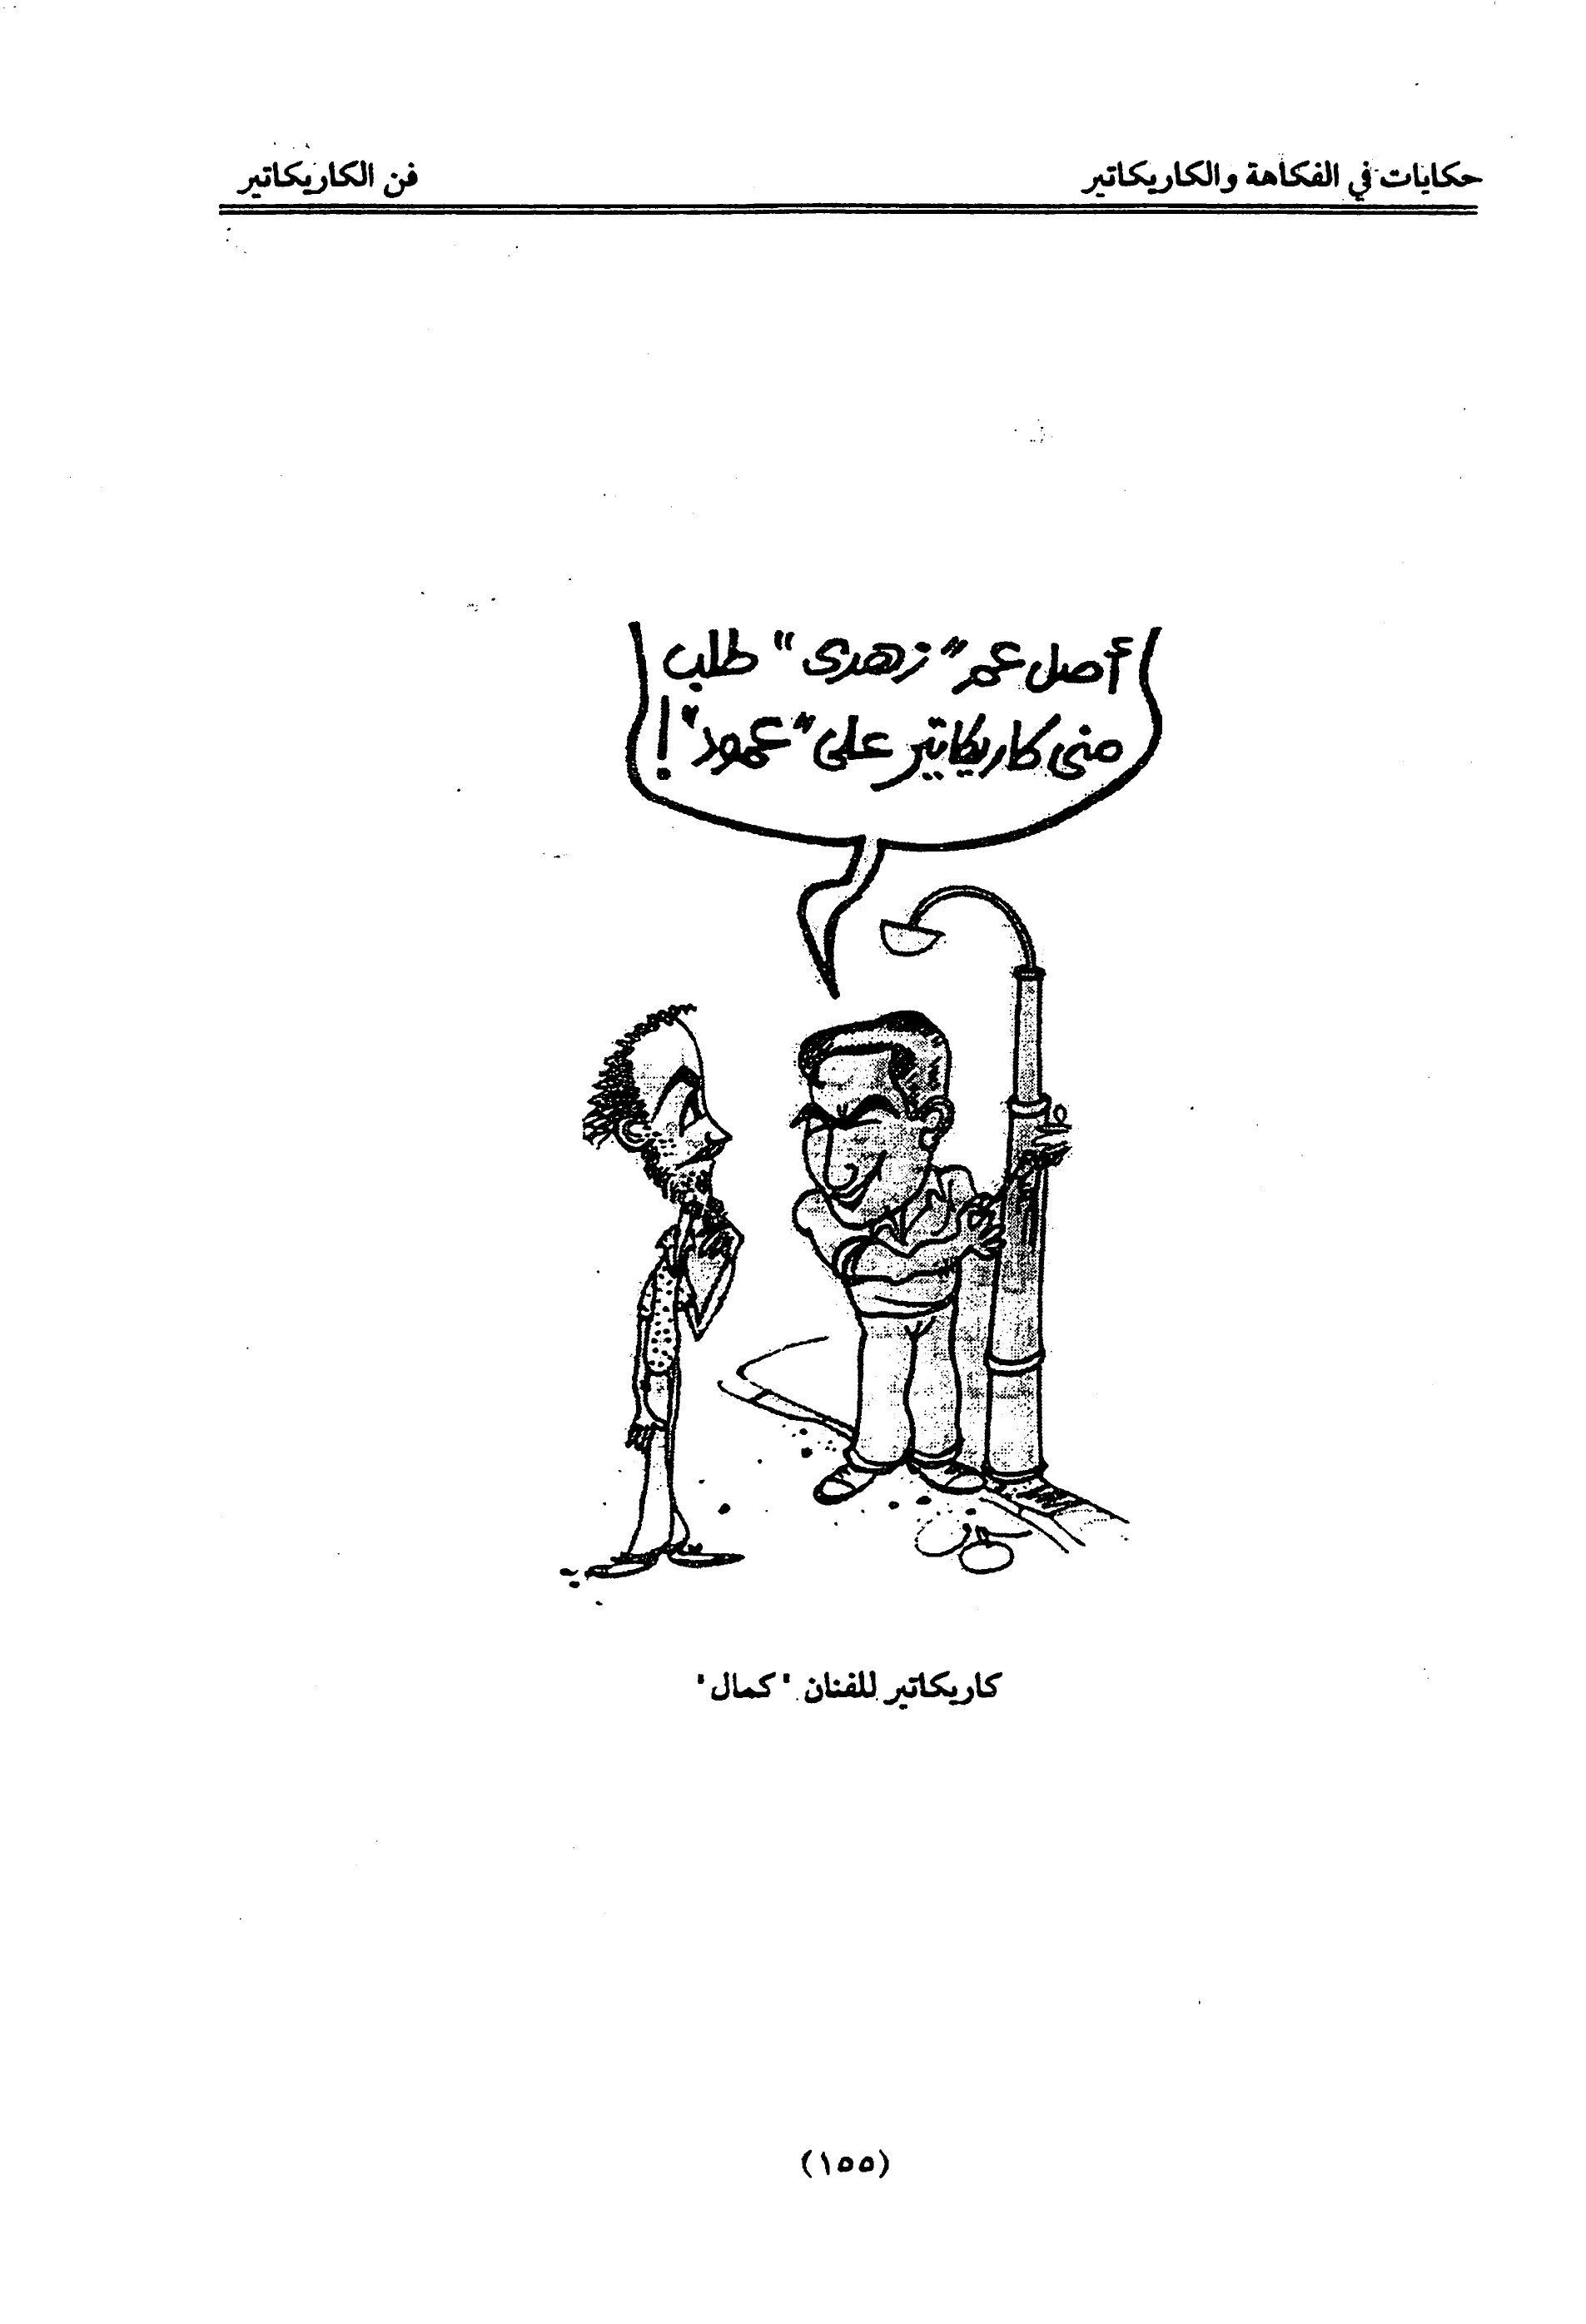 حكايات في الفكاهة والكاريكاتير
فن الكاريكاتير
أصل عم "زهدى" طلب
منى كاريكاتير على "عمود"!
كاريكاتير للفنان "كمال"
(١٥٥)